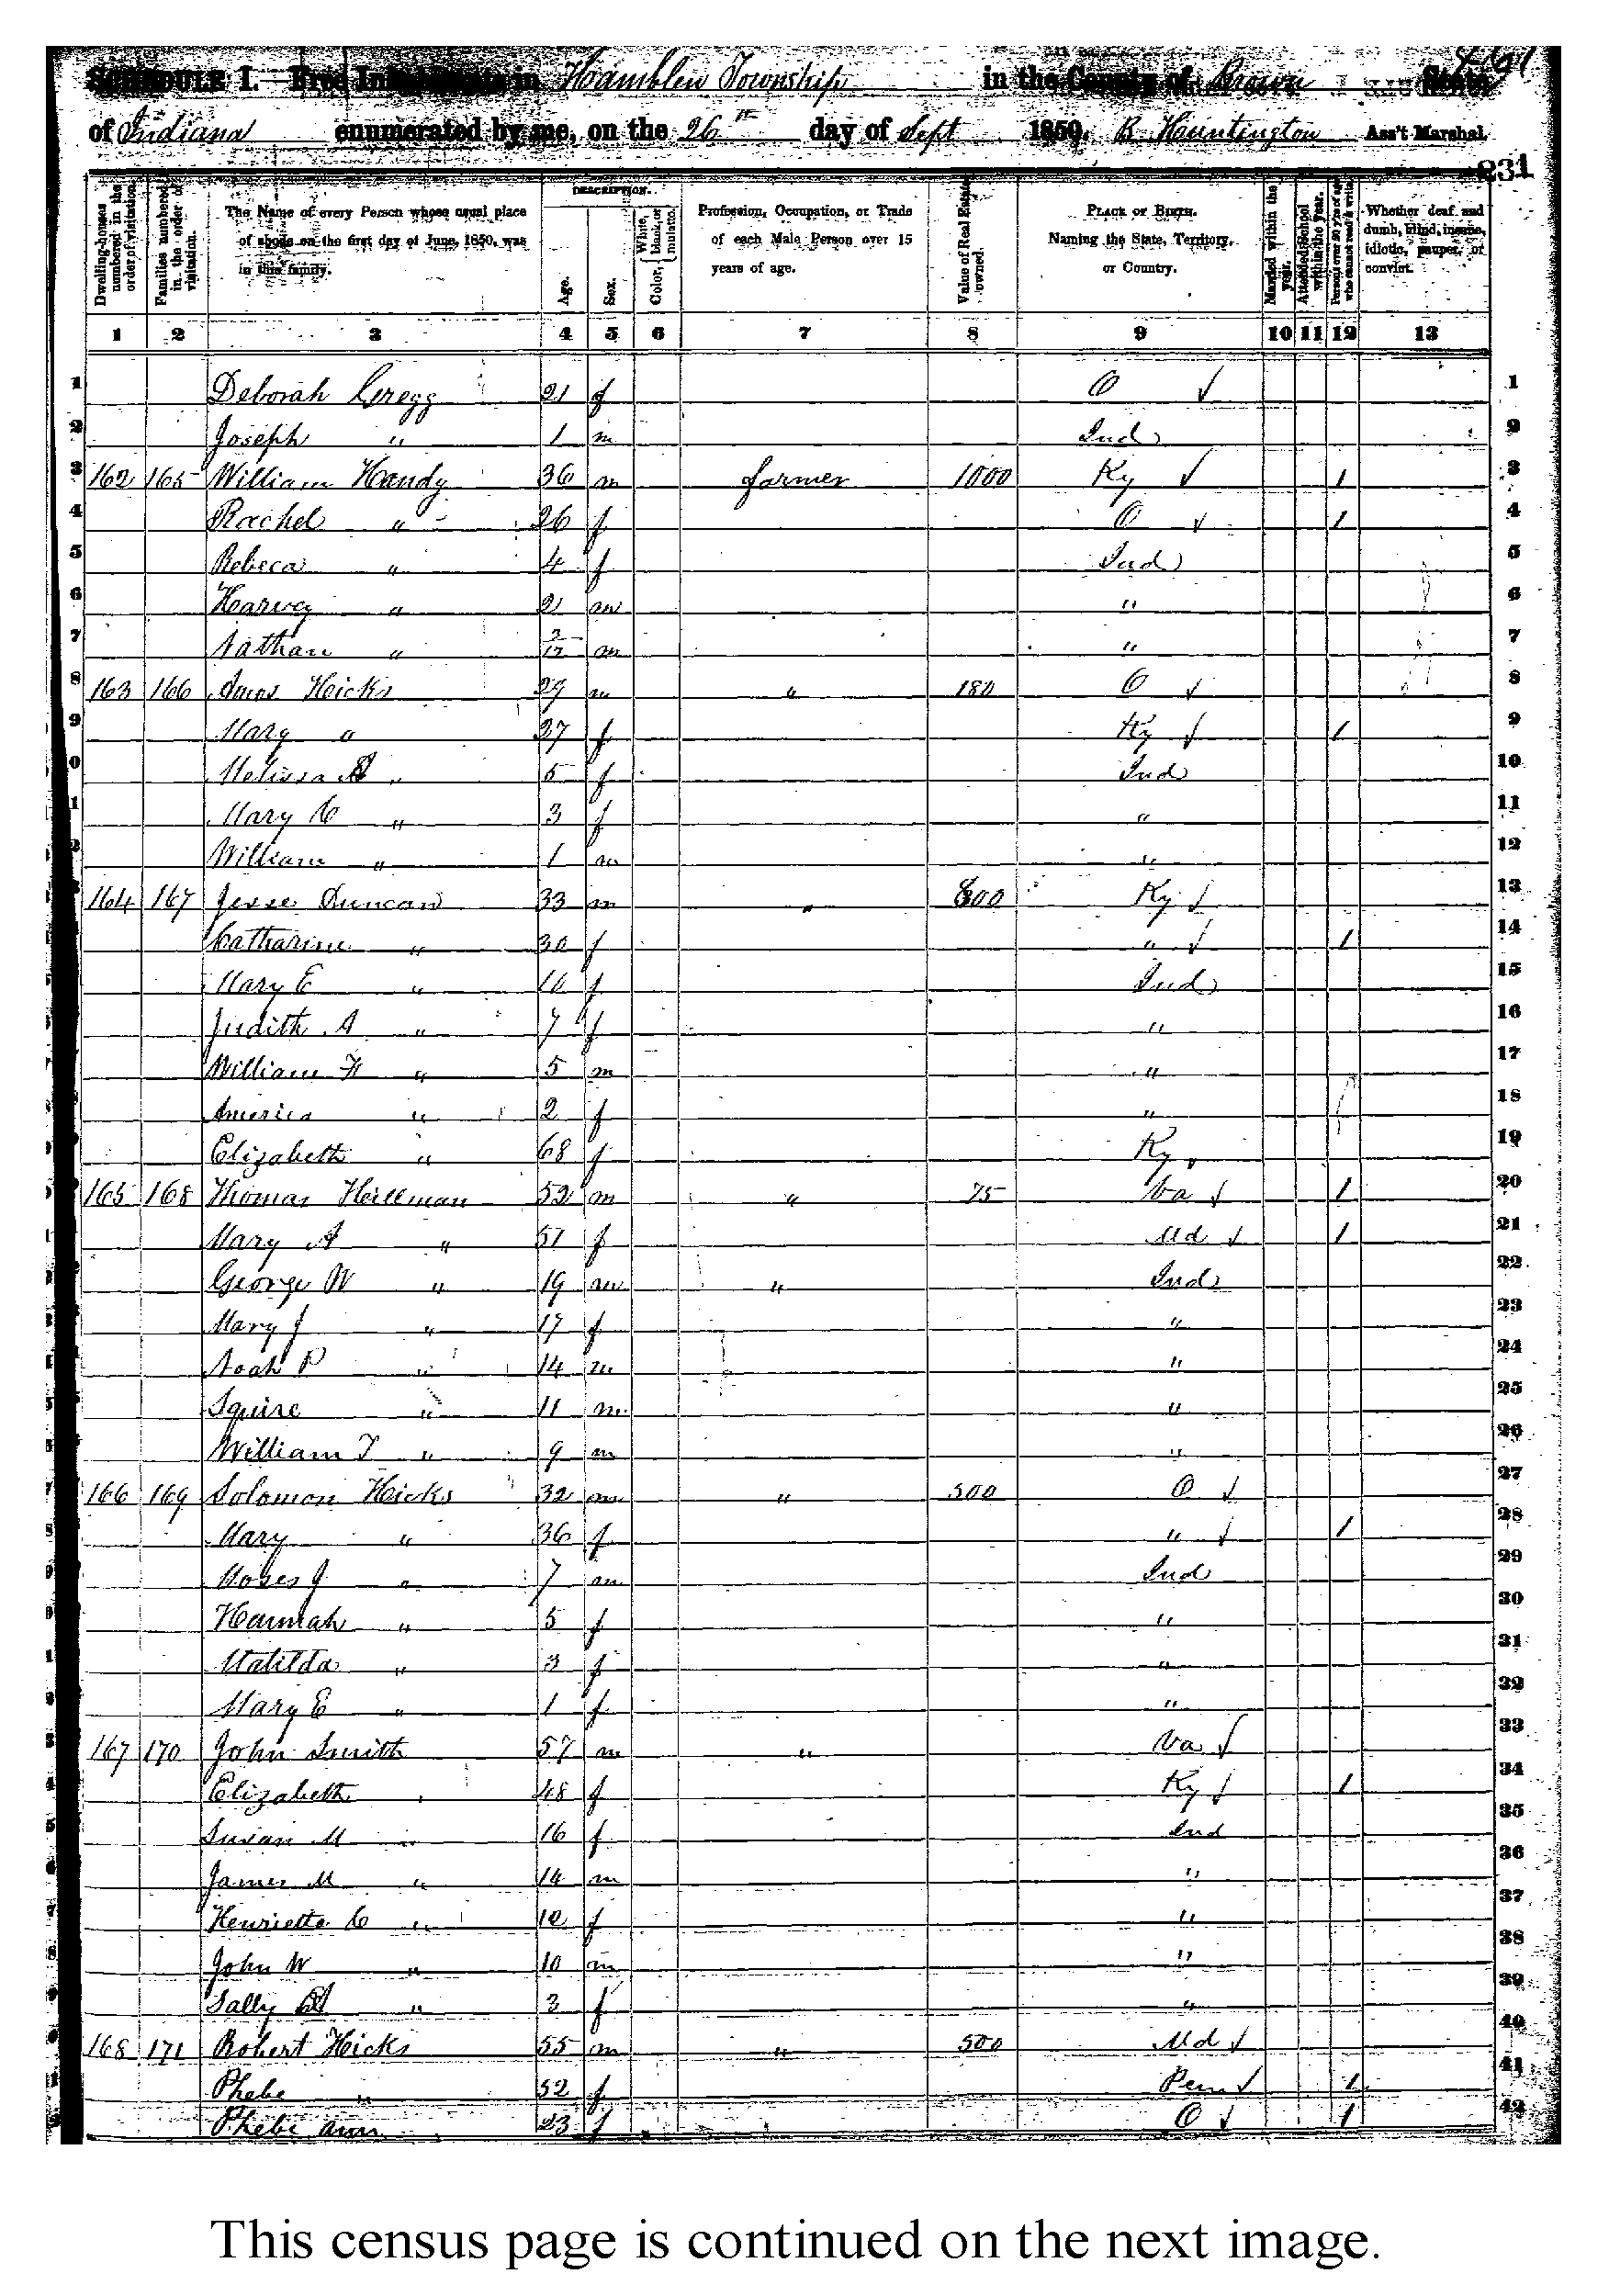 SCHEDULE I. Free Inhabitants in Hamblen Township in the County of Brown State
of Indiana enumerated by me, on the 26th day of Sept 1850. B Huntington Ass't Marshal.
231
Dwelling-houses numbered in the order of visitation.
Families numbered in the order of visitation.
The Name of every Person whose usual place of abode on the first day of June, 1850, was in this family.
DESCRIPTION.
Age.
Sex.
Color, White, black, or mulatto.
Profession, Occupation, or Trade of each Male Person over 15 years of age.
Value of Real Estate owned.
PLACE OF BIRTH. Naming the State, Territory, or Country.
Married within the year.
Attended School within the year.
Persons over 20 y'rs of age who cannot read & write.
Whether deaf and dumb, blind, insane, idiotic, pauper, or convict.
1 2 3 4 5 6 7 8 9 10 11 12 13
1 Deborah Gregg 21 f O ✓ 1
2 Joseph " 1 m Ind 2
3 162 165 William Handy 36 m farmer 1000 Ky ✓ 1 3
4 Rachel " 26 f O ✓ 1 4
5 Rebeca " 4 f Ind 5
6 Harvy " 21 m " 6
7 Nathan " 3/12 m " 7
8 163 166 Amos Hicks 29 m " 180 O ✓ 8
9 Mary " 27 f Ky ✓ 1 9
0 Melissa A " 5 f Ind 10
1 Mary C " 3 f " 11
2 William " 1 m " 12
164 167 Jesse Duncan 33 m " 800 Ky ✓ 13
Catharine " 30 f " ✓ 1 14
Mary E " 10 f Ind 15
Judith A " 7 f " 16
William H " 5 m " 17
America " 2 f " 18
Elizabeth " 68 f Ky 19
165 168 Thomas Hillman 52 m " 75 Va ✓ 1 20
Mary A " 51 f Md ✓ 1 21
George W " 19 m " Ind 22
Mary J " 17 f " 23
Noah P " 14 m " 24
Squire " 11 m " 25
William T " 9 m " 26
166 169 Solomon Hicks 32 m " 500 O ✓ 27
Mary " 36 f " ✓ 1 28
Moses J " 7 m Ind 29
Hannah " 5 f " 30
Matilda " 3 f " 31
Mary E " 1 f " 32
167 170 John Smith 57 m " Va ✓ 33
Elizabeth " 48 f Ky ✓ 1 34
Susan M " 16 f Ind 35
James M " 14 m " 36
Henrietta C " 12 f " 37
John W " 10 m " 38
Sally " 3 f " 39
168 171 Robert Hicks 55 m " 500 Md ✓ 40
Phebe " 52 f Pen ✓ 1 41
Phebe Ann 23 f O ✓ 1 42
This census page is continued on the next image.